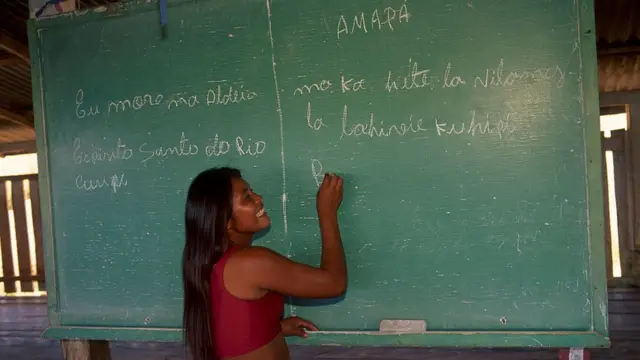 AMAPÁ
Eu moro na Aldeia
Espirito Santo do Rio
Curipi
maka hété la vilamas
la bahieié kuhipi